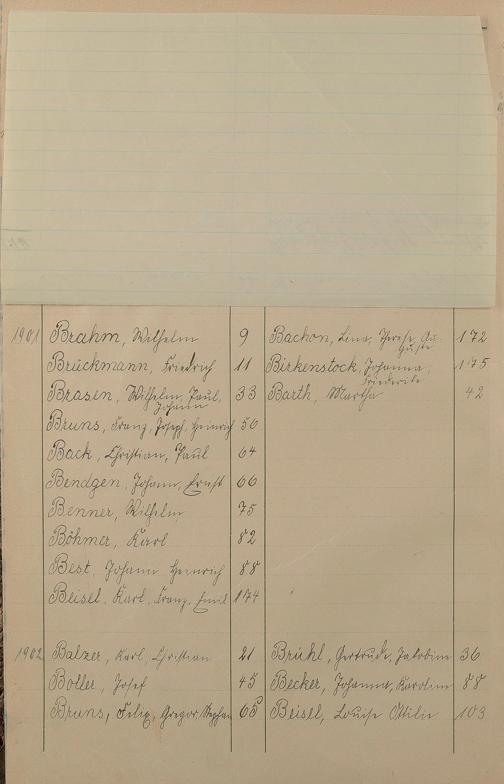 1901 Brahm, Wilhelm 9 Bachon, Lina, Therese, Au-
guste 172
Brückmann, Friedrich 11 Birkenstock, Johanna, 175
Friederike
Brasen, Wilhelm, Paul, 33 Barth, Martha 42
Johann
Bruns, Franz, Joseph, Heinrich 56
Back, Christian, Paul 64
Bendgen, Johann, Ernst 66
Benner, Wilhelm 75
Böhmer, Karl 82
Best, Johann Heinrich 88
Beisel, Karl, Franz, Emil 174
1902 Balzer, Karl, Christian 21 Brühl, Gertrude, Jakobine 36
Boller, Josef 45 Becker, Johanna, Karoline 88
Bruns, Felix, Gregor, Stephan 65 Beisel, Louise Ottilie 103